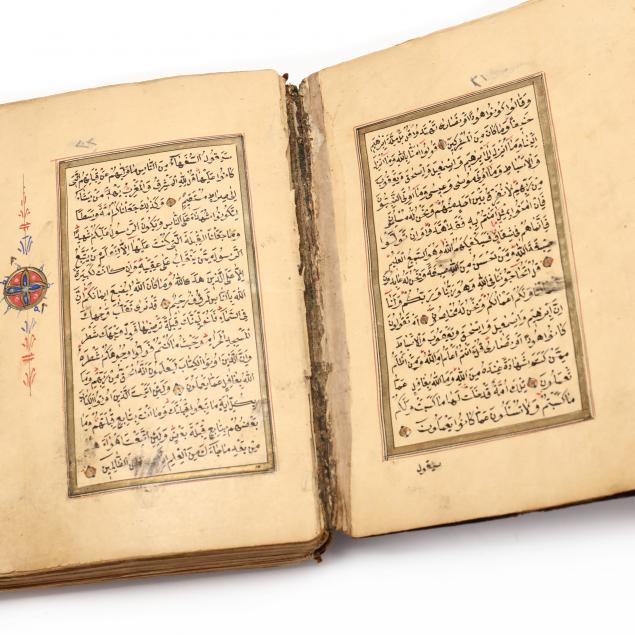 ٢١
وقالوا كونوا هودا او نصارى تهتدوا قل بل ملة ابرهيم
حنيفا وما كان من المشركين قولوا امنا بالله وما انزل
الينا وما انزل الى ابرهيم واسمعيل واسحق ويعقوب
والاسباط وما اوتي موسى وعيسى وما اوتي النبيون
من ربهم لا نفرق بين احد منهم ونحن له مسلمون
فان امنوا بمثل ما امنتم به فقد اهتدوا وان تولوا
فانما هم في شقاق فسيكفيكهم الله وهو السميع العليم
صبغة الله ومن احسن من الله صبغة ونحن له عابدون
قل اتحاجوننا في الله وهو ربنا وربكم ولنا
اعمالنا ولكم اعمالكم ونحن له مخلصون ام تقولون
ان ابرهيم واسمعيل واسحق ويعقوب والاسباط
كانوا هودا او نصارى قل ءانتم اعلم ام الله ومن اظلم
ممن كتم شهادة عنده من الله وما الله بغافل عما
تعملون تلك امة قد خلت لها ما كسبت ولكم
ما كسبتم ولا تسئلون عما كانوا يعملون
سيقول
سيقول السفهاء من الناس ما وليهم عن قبلتهم التي
كانوا عليها قل لله المشرق والمغرب يهدي من يشاء
الى صراط مستقيم وكذلك جعلناكم امة وسطا
لتكونوا شهداء على الناس ويكون الرسول عليكم شهيدا
وما جعلنا القبلة التي كنت عليها الا لنعلم من يتبع
الرسول ممن ينقلب على عقبيه وان كانت لكبيرة
الا على الذين هدى الله وما كان الله ليضيع ايمانكم ان
الله بالناس لرؤف رحيم قد نرى تقلب وجهك
في السماء فلنولينك قبلة ترضيها فول وجهك شطر
المسجد الحرام وحيث ما كنتم فولوا وجوهكم شطره
وان الذين اوتوا الكتاب ليعلمون انه الحق من ربهم وما
الله بغافل عما يعملون ولئن اتيت الذين اوتوا الكتاب
بكل اية ما تبعوا قبلتك وما انت بتابع قبلتهم وما
بعضهم بتابع قبلة بعض ولئن اتبعت اهواءهم
من بعد ما جاءك من العلم انك اذا لمن الظالمين